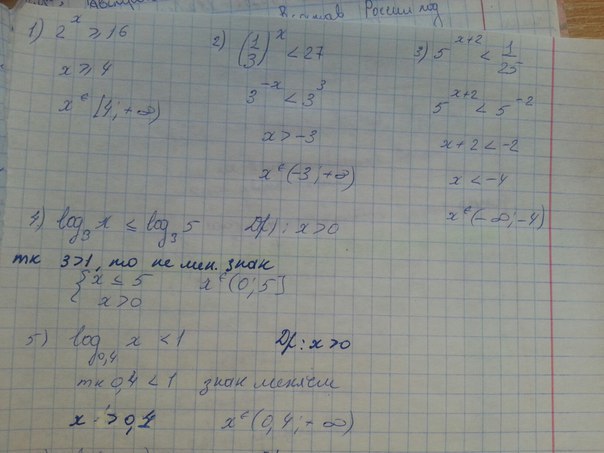 в состав России под
1) 2^x ≥ 16
x ≥ 4
x ∈ [4; +∞)
2) (1/3)^x < 27
3^{-x} < 3^3
x > -3
x ∈ (-3; +∞)
3) 5^{x+2} < 1/25
5^{x+2} < 5^{-2}
x + 2 < -2
x < -4
x ∈ (-∞; -4)
4) log_3 x ≤ log_3 5 Df: x > 0
тк 3>1, то не мен. знак
{ x ≤ 5 x ∈ (0; 5]
x > 0
5) log_{0,4} x < 1 Df: x > 0
тк 0,4 < 1 знак меняем
x > 0,4 x ∈ (0,4; +∞)